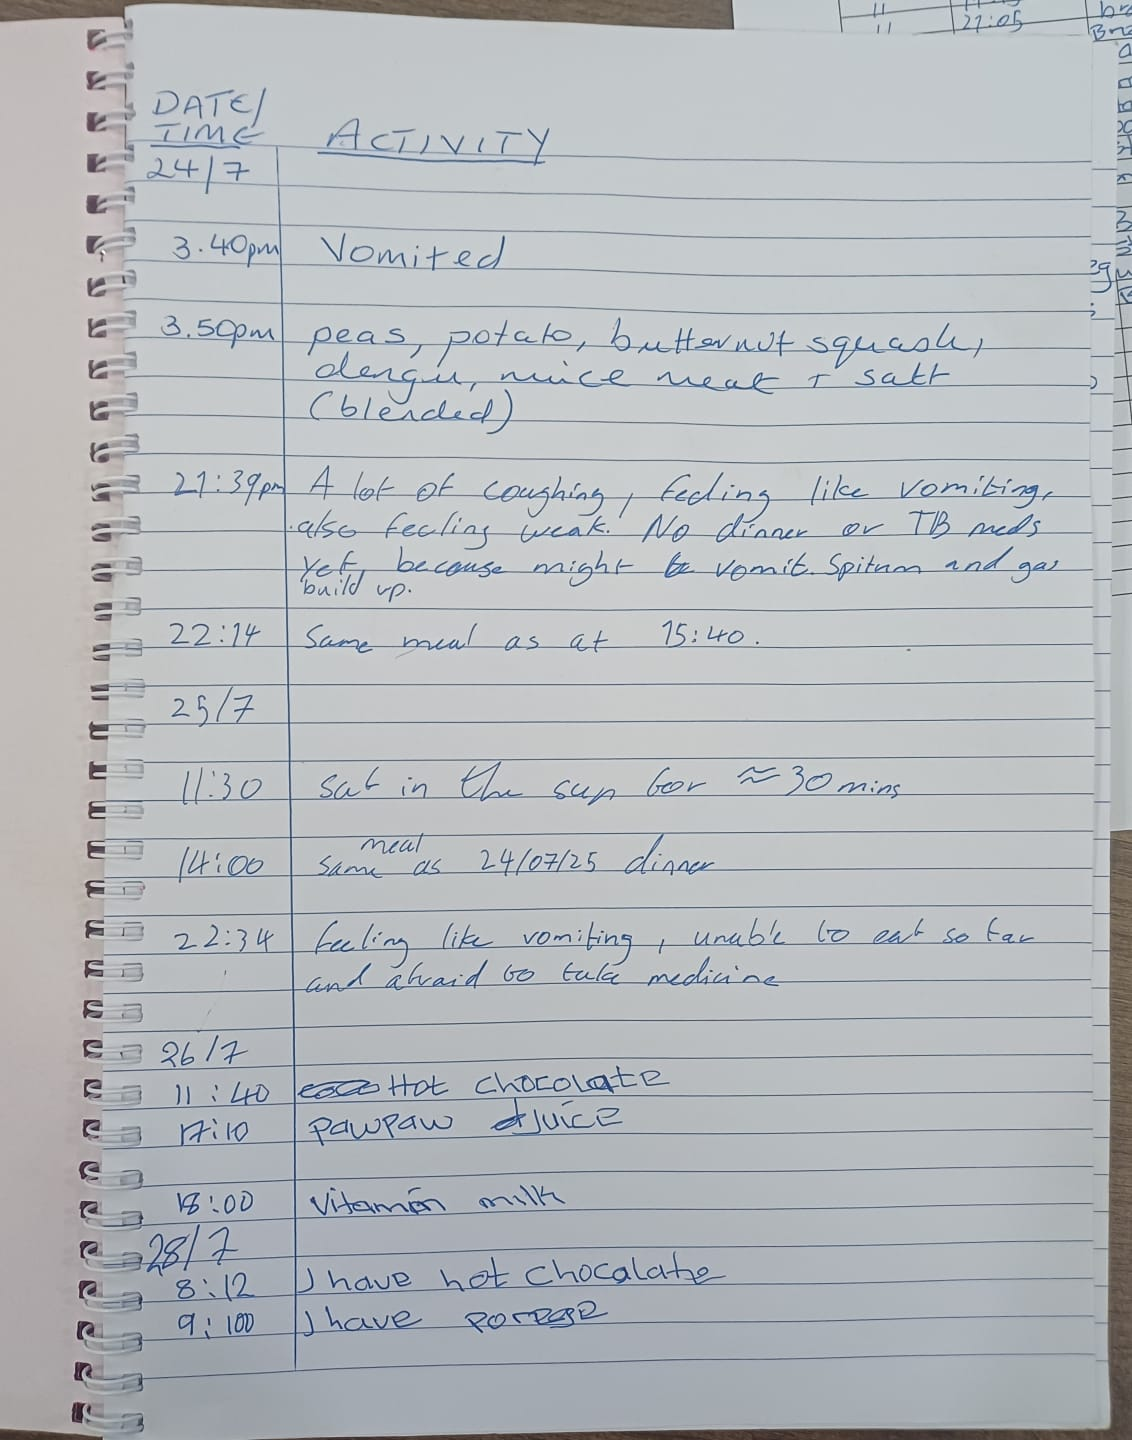 11
21:05
11
DATE/
TIME
ACTIVITY
24/7
3.40pm Vomited
3.50pm peas, potato, butternut squash,
dengu, mince meat + salt
(blended)
21:39pm A lot of coughing, feeling like vomiting,
also feeling weak. No dinner or TB meds
yet, because might vomit. Spitum and gas
build up.
22:14 Same meal as at 15:40.
25/7
11:30 Sat in the sun for ≈ 30 mins
meal
14:00 Same as 24/07/25 dinner
22:34 feeling like vomiting, unable to eat so far
and afraid to take medicine
26/7
11:40 Hot chocolate
17:10 pawpaw juice
18:00 Vitamin milk
28/7
8:12 I have hot chocalate
9:100 I have porege